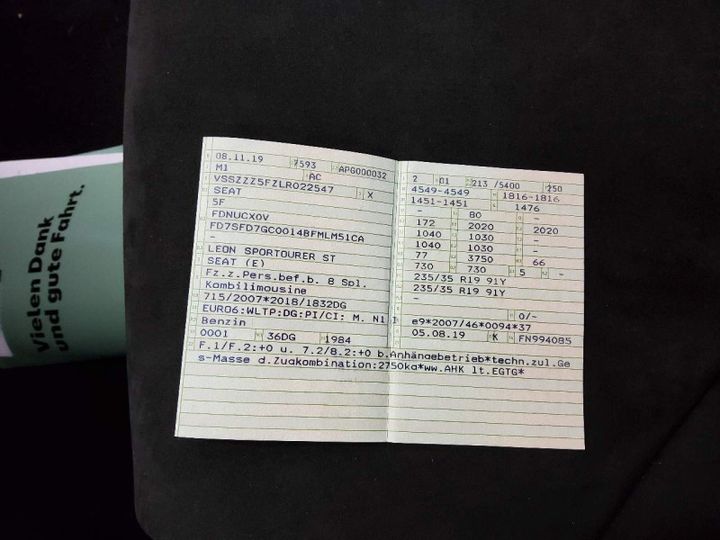 Vielen Dank
und gute Fahrt.
08.11.19 7593 APG000032
M1 AC
VSSZZZ5FZLR022547 X
SEAT
5F
FDNUCX0V
FD7SFD7GC0014BFMLM51CA
-
LEON SPORTOURER ST
SEAT (E)
Fz.z.Pers.bef.b. 8 Spl.
Kombilimousine
715/2007*2018/1832DG
EURO6:WLTP:DG:PI/CI: M. N1 I
Benzin
0001 36DG 1984
2 01 213 /5400 250
4549-4549 1816-1816
1451-1451 1476
- 80 -
172 2020 2020
1040 1030 -
1040 1030 -
77 3750 66
730 730 5 -
235/35 R19 91Y
235/35 R19 91Y
-
0/-
e9*2007/46*0094*37
05.08.19 K FN994085
F.1/F.2:+0 u. 7.2/8.2:+0 b.Anhängebetrieb*techn.zul.Ge
s-Masse d.Zugkombination:2750kg*ww.AHK lt.EGTG*